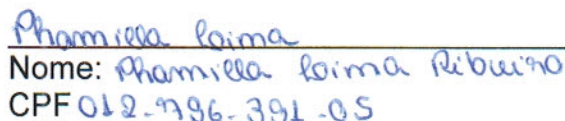 Phamilla Loima
Nome: Phamilla Loima Ribeiro
CPF 012-796-391-05